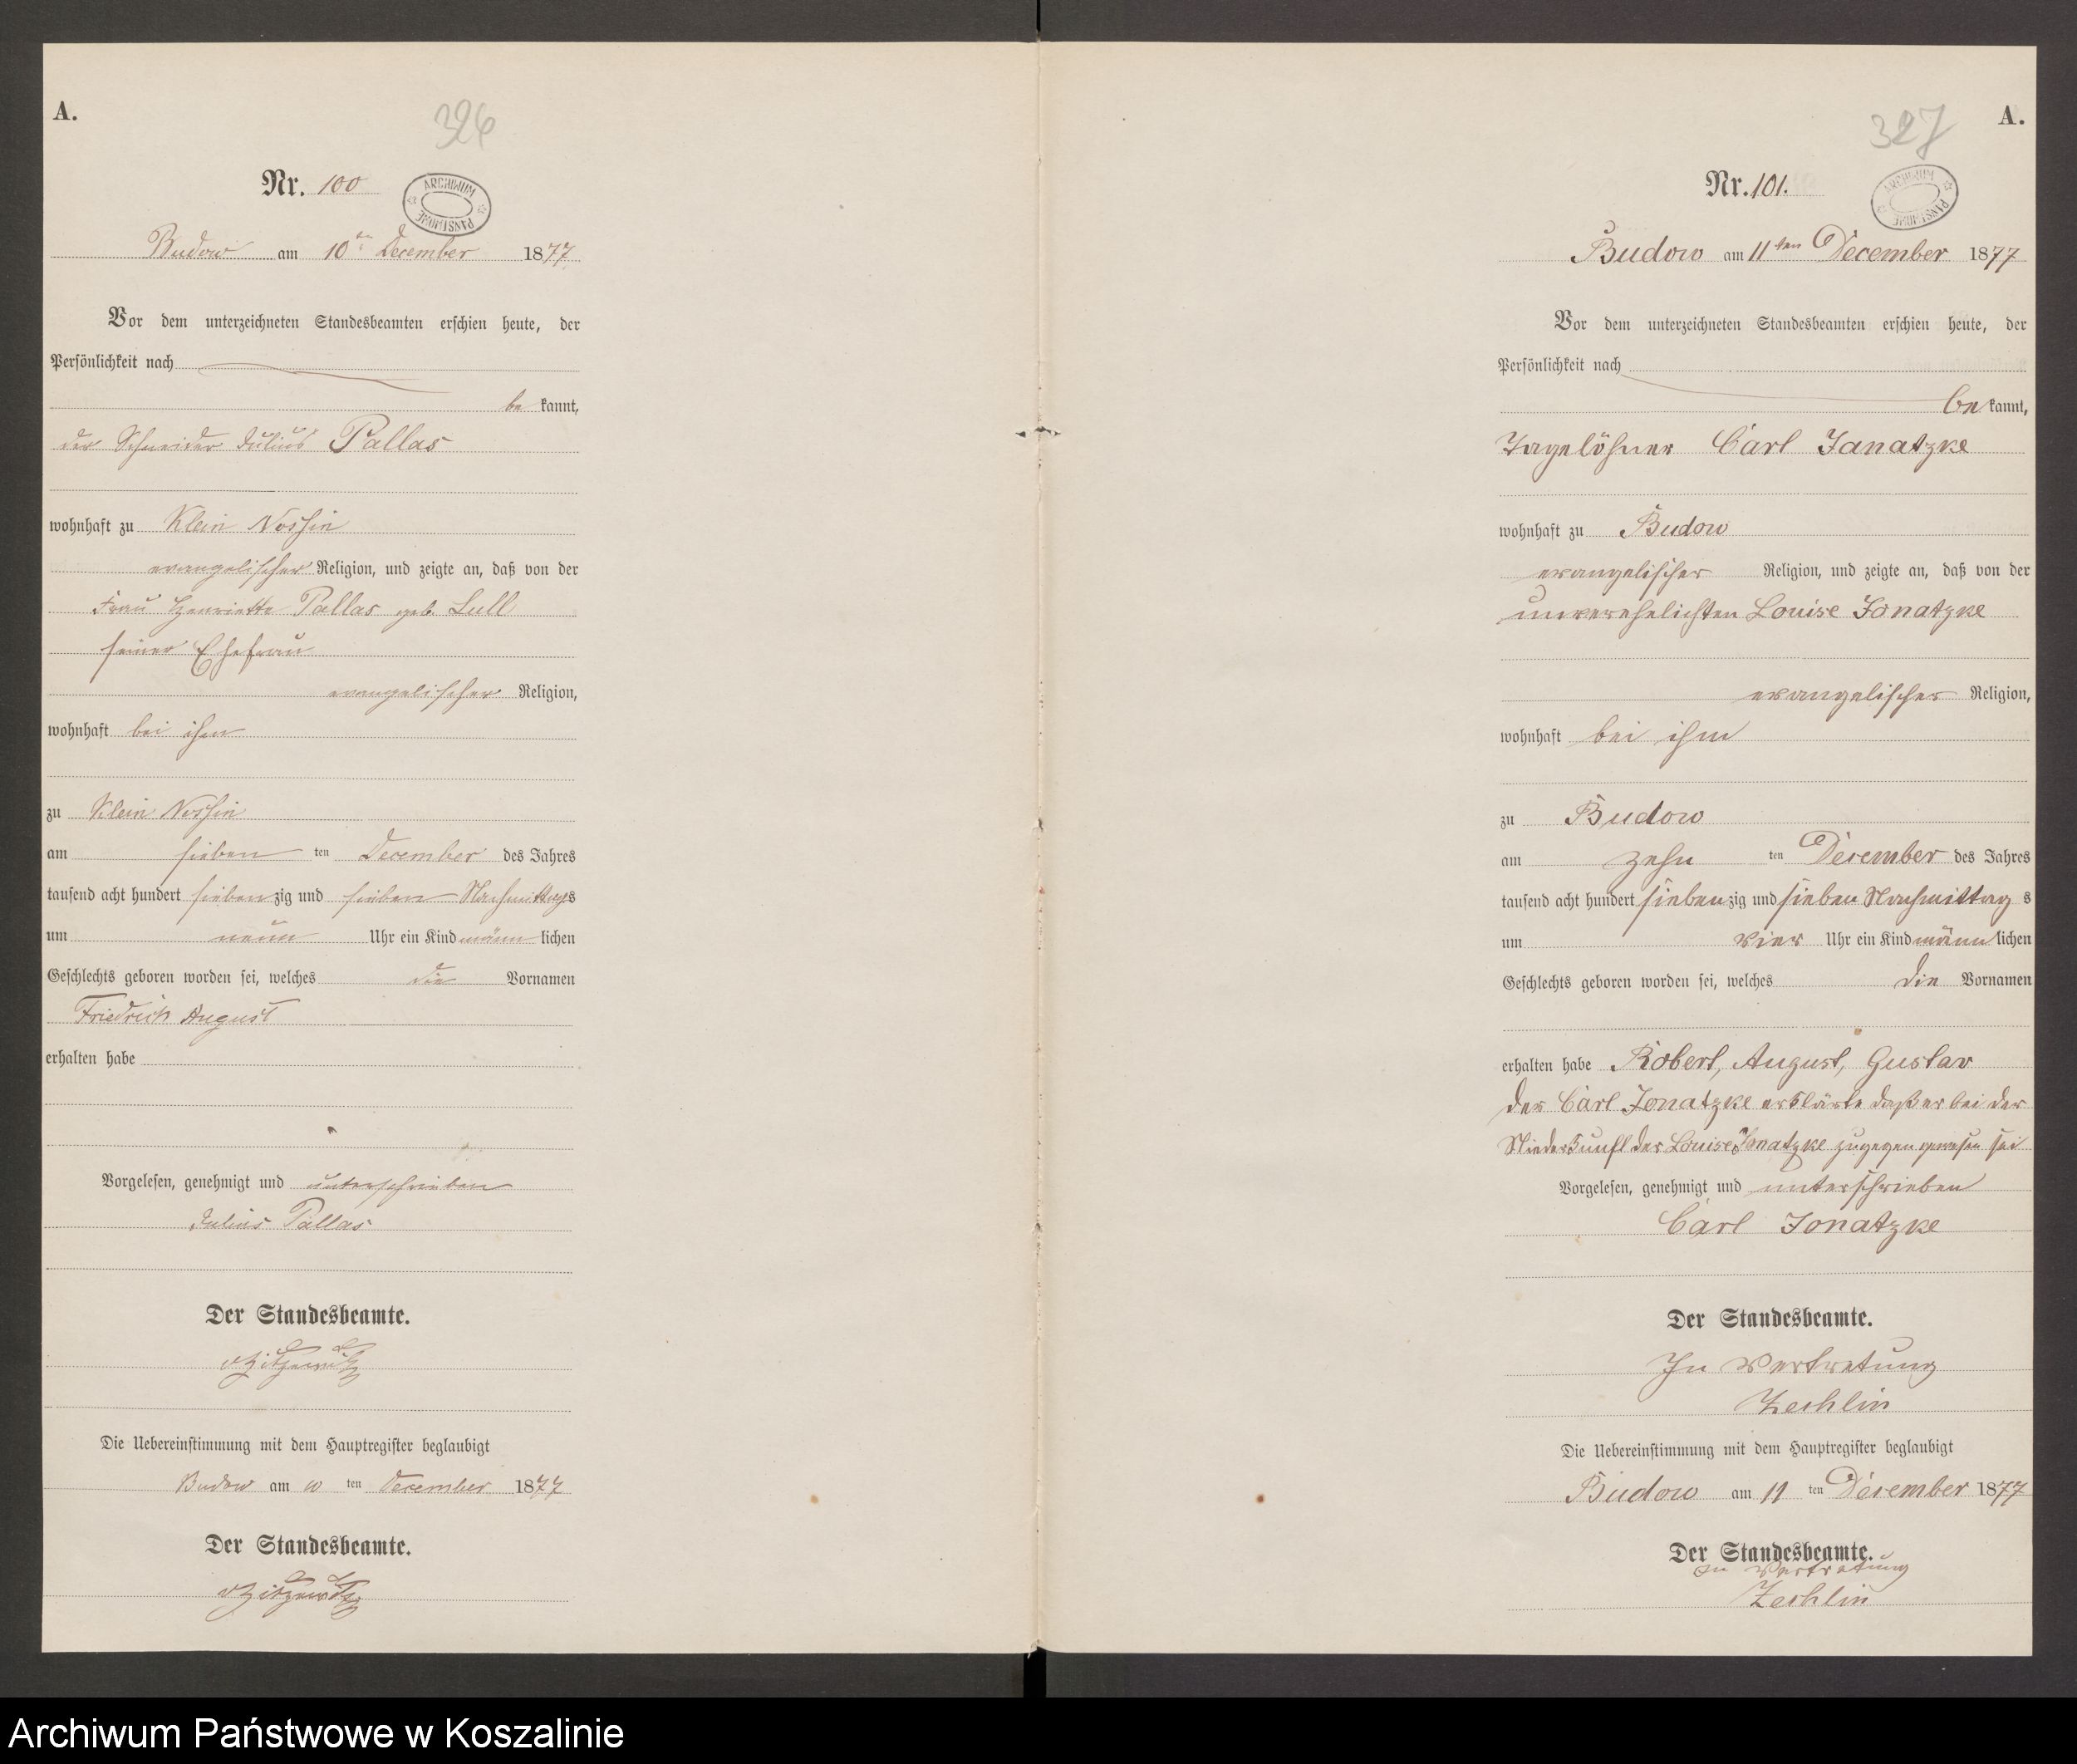 A.
326
Nr. 100
ARCHIWUM PAŃSTWOWE
Budow am 10ten December 1877
Vor dem unterzeichneten Standesbeamten erschien heute, der
Persönlichkeit nach
be kannt,
der Schneider Julius Pallas
wohnhaft zu Klein Nossin
evangelischer Religion, und zeigte an, daß von der
Frau Henriette Pallas geb. Lull
seiner Ehefrau
evangelischer Religion,
wohnhaft bei ihm
zu Klein Nossin
am sieben ten December des Jahres
tausend acht hundert siebenzig und sieben Nachmittags
um neun Uhr ein Kind männlichen
Geschlechts geboren worden sei, welches die Vornamen
Friedrich August
erhalten habe
Vorgelesen, genehmigt und unterschrieben
Julius Pallas
Der Standesbeamte.
vZitzewitz
Die Uebereinstimmung mit dem Hauptregister beglaubigt
Budow am 10 ten December 1877
Der Standesbeamte.
vZitzewitz
A.
327
Nr. 101.
ARCHIWUM PAŃSTWOWE
Budow am 11ten December 1877
Vor dem unterzeichneten Standesbeamten erschien heute, der
Persönlichkeit nach
be kannt,
Tagelöhner Carl Janatzke
wohnhaft zu Budow
evangelischer Religion, und zeigte an, daß von der
unverehelichten Louise Jonatzke
evangelischer Religion,
wohnhaft bei ihm
zu Budow
am zehn ten December des Jahres
tausend acht hundert siebenzig und sieben Nachmittag s
um vier Uhr ein Kind männlichen
Geschlechts geboren worden sei, welches die Vornamen
erhalten habe Robert, August, Gustav
der Carl Jonatzke erklärte daß er bei der
Niederkunft der Louise Jonatzke zugegen gewesen sei
Vorgelesen, genehmigt und unterschrieben
Carl Jonatzke
Der Standesbeamte.
In Vertretung
Zechlin
Die Uebereinstimmung mit dem Hauptregister beglaubigt
Budow am 11 ten December 1877
Der Standesbeamte.
In Vertretung
Zechlin
Archiwum Państwowe w Koszalinie